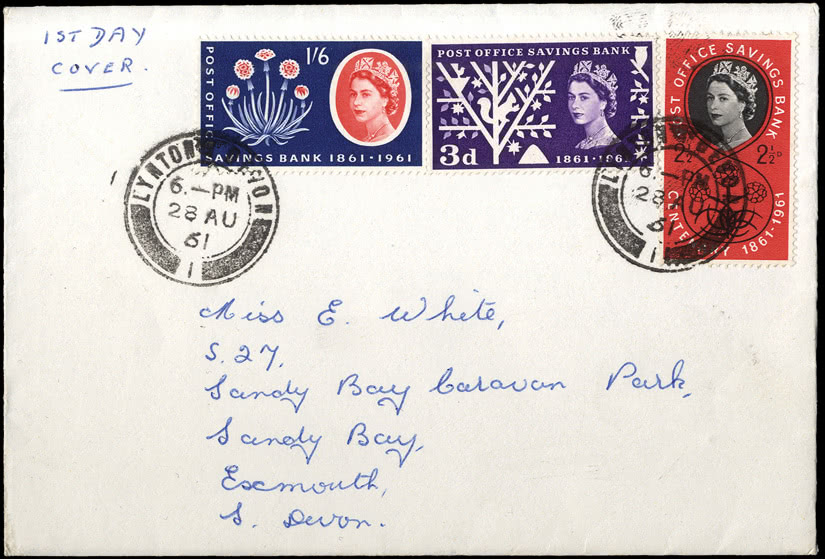 1ST DAY
COVER.
POST OFFICE
1/6
SAVINGS BANK 1861·1961
POST OFFICE SAVINGS BANK
3d
1861·1961
POST OFFICE SAVINGS BANK
2½ 2½D
CENTENARY 1861·1961
LYNTON DEVON
6.—PM
28 AU
61
1
LYNTON DEVON
6.—PM
28 AU
61
1
Miss E. White,
S.27,
Sandy Bay Caravan Park,
Sandy Bay,
Exmouth,
S. Devon.